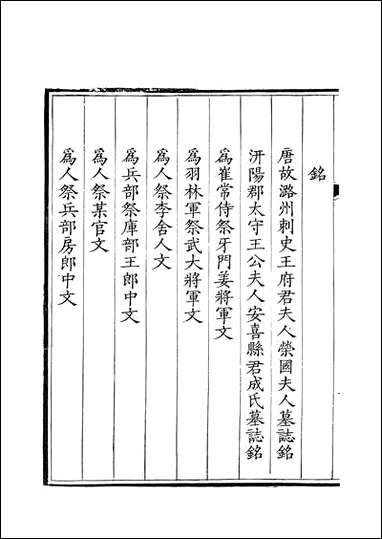 銘
唐故潞州刺史王府君夫人榮國夫人墓誌銘
汧陽郡太守王公夫人安喜縣君成氏墓誌銘
爲崔常侍祭牙門姜將軍文
爲羽林軍祭武大將軍文
爲人祭李舍人文
爲兵部祭庫部王郎中文
爲人祭某官文
爲人祭兵部房郎中文